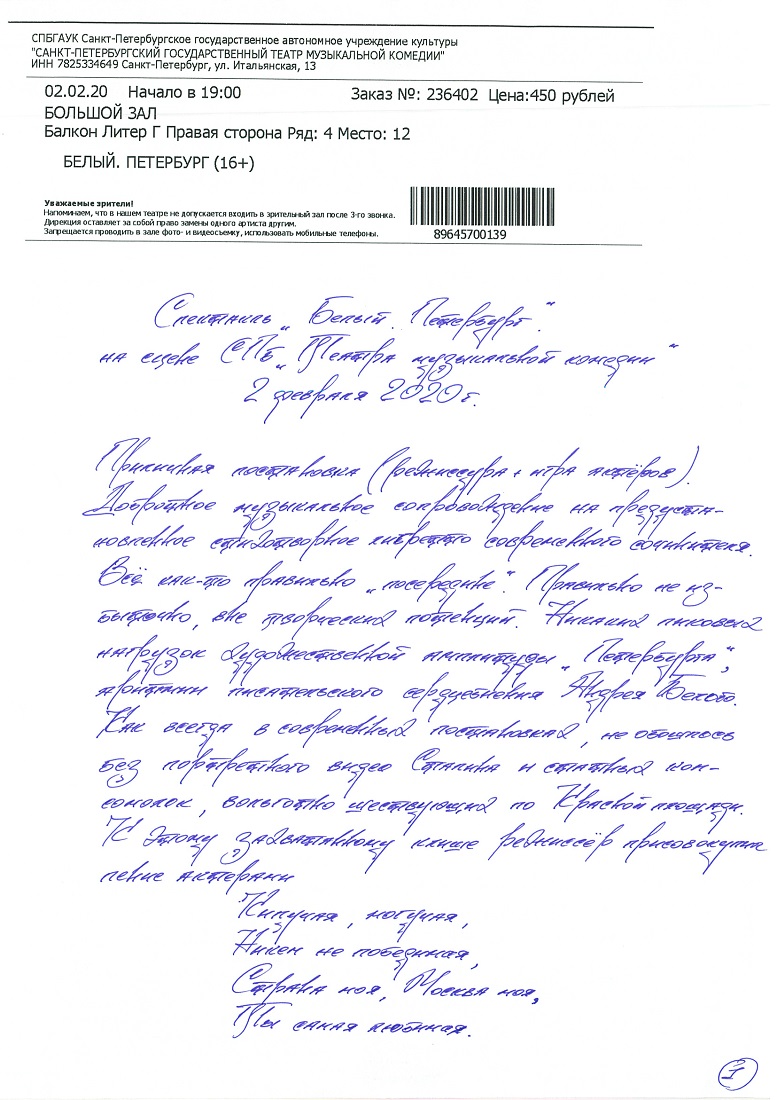 СПБГАУК Санкт-Петербургское государственное автономное учреждение культуры
"САНКТ-ПЕТЕРБУРГСКИЙ ГОСУДАРСТВЕННЫЙ ТЕАТР МУЗЫКАЛЬНОЙ КОМЕДИИ"
ИНН 7825334649 Санкт-Петербург, ул. Итальянская, 13
02.02.20 Начало в 19:00 Заказ №: 236402 Цена:450 рублей
БОЛЬШОЙ ЗАЛ
Балкон Литер Г Правая сторона Ряд: 4 Место: 12
БЕЛЫЙ. ПЕТЕРБУРГ (16+)
Уважаемые зрители!
Напоминаем, что в нашем театре не допускается входить в зрительный зал после 3-го звонка.
Дирекция оставляет за собой право замены одного артиста другим.
Запрещается проводить в зале фото- и видеосъемку, использовать мобильные телефоны.
89645700139
Спектакль „Белый. Петербург“.
на сцене СПб „Театра музыкальной комедии“
2 февраля 2020 г.
Приличная постановка (режиссура + игра актёров).
Добротное музыкальное сопровождение на предуста-
новленное стихотворное либретто современного сочинителя.
Всё как-то правильно „посередине“. Правильно не из-
быточно, вне творческих потенций. Никаких пиковых
нагрузок художественной амплитуды „Петербурга“,
аритмии писательского сердцебиения Андрея Белого.
Как всегда в современных постановках, не обошлось
без портретного видео Сталина и статных ком-
сомолок, вольготно шествующих по Красной площади.
К этому захватанному клише режиссёр присовокупил
пение актёрами
Кипучая, могучая,
Никем не победимая,
Страна моя, Москва моя,
Ты самая любимая.
1